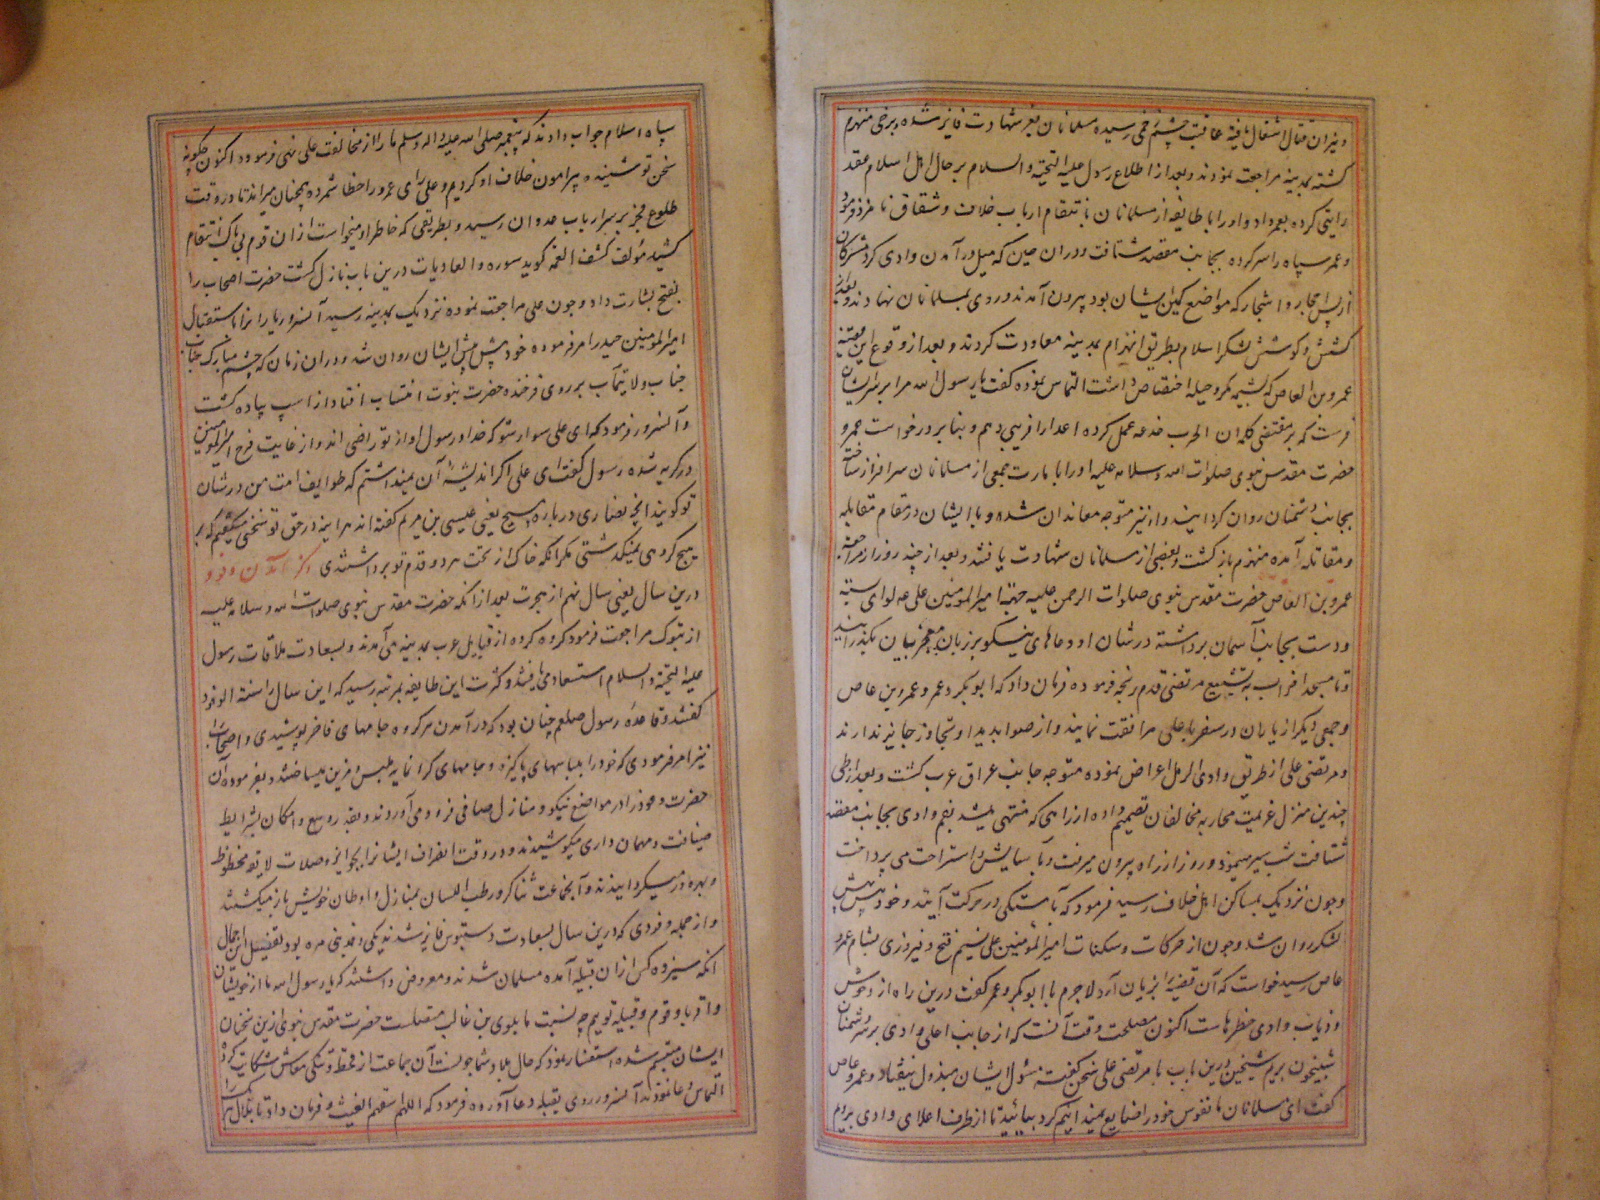 و نیران قتال اشتعال یافته عاقبت چشم زخمی رسیده مسلمانان بعز شهادت فایز شده و برخی منهزم
کشته بمدینه مراجعت نمودند و بعد از اطلاع رسول علیه التحیة والسلام بر حال اهل اسلام عقد
رایتی کرده بعمر داد و او را با طایفه از مسلمانان بانتقام ارباب خلاف و شقاق نامزد فرمود
و عمر سپاه را سر کرده بجانب مقصد شتافت و در آن حین که میل در آمدن وادی کرد مشرکان
از پس احجار و اشجار که مواضع کمین ایشان بود بیرون آمدند و روی بمسلمانان نهادند و بعد از
کشش و کوشش لشکر اسلام بطریق انهزام بمدینه معاودت کردند و بعد از وقوع این قضیه
عمرو بن العاص که بشیمه مکر و حیله اختصاص داشت التماس نموده گفت یا رسول الله مرا بر سر ایشان
فرست که بر مقتضی کلمه ان الحرب خدعه عمل کرده اعدا را فریبی دهم و بنا بر درخواست عمرو
حضرت مقدس نبوی صلوات الله و سلامه علیه او را بامارت جمعی از مسلمانان سرافراز ساخته
بجانب دشمنان روان گردانید و او نیز متوجه معاندان شده و با ایشان در مقام مقابله
و مقاتله آمده منهزم بازگشت و بعضی از مسلمانان شهادت یافتند و بعد از چند روز از مراجعت
عمرو بن العاص حضرت مقدس نبوی صلوات الرحمن علیه جهة امیرالمومنین علی عه لوای بسته
و دست بجانب آسمان برداشته در شان او دعاهای نیکو بر زبان معجز بیان بگذرانید
و تا مسجد احزاب به تشییع مرتضی قدم رنجه فرموده فرمان داد که ابو بکر و عمر و عمرو بن عاص
و جمعی دیگر از یاران در سفر با علی مرافقت نمایند و از صوابدید او تجاوز جایز ندارند
و مرتضی علی از طریق وادی الرمل اعراض نموده متوجه جانب عراق عرب گشت و بعد از طی
چندین منزل عزیمت محاربه مخالفان تصمیم داده از راهی که منتهی میشد بفم وادی بجانب مقصد
شتافت شب سیر مینمود و روز از راه بیرون میرفت و بآسایش و استراحت می پرداخت
و چون نزدیک بمساکن اهل خلاف رسید فرمود که بآهستگی در حرکت آیند و خود پیش پیش
لشکر روان شد و چون از حرکات و سکنات امیرالمومنین علی نسیم فتح و فیروزی بمشام عمرو
عاص رسید خواست که آن قضیه را بزیان آرد لاجرم با ابو بکر و عمر گفت درین راه از وحوش
و ذیاب وادی خطرهاست اکنون مصلحت وقت آنست که از جانب اعلی وادی بر سر دشمنان
شبیخون بریم شیخین درین باب با مرتضی علی سخن گفتند مسئول ایشان مبذول نیفتاد و عمرو عاص
گفت ای مسلمانان ما نفوس خود را ضایع نمیتوانیم کرد بیائید تا از طرف اعلای وادی برویم
سپاه اسلام جواب دادند که پیغمبر صلی الله علیه و اله وسلم ما را از مخالفت علی نهی فرموده اکنون چگونه
سخن تو شنیده پیرامون خلاف او گردیم و علی رای عمرو را خطا شمرده همچنان میراند تا در وقت
طلوع فجر بر سر ارباب عدوان رسید و بطریقی که خاطر او میخواست از آن قوم بی باک انتقام
کشید مؤلف کشف الغمه گوید سوره والعادیات درین باب نازل گشت حضرت اصحاب را
بفتح بشارت داد و چون علی مراجعت نموده نزدیک بمدینه رسید آنسرور یارانرا باستقبال
امیرالمومنین حیدر امر فرموده خود پیش پیش ایشان روان شد و در آن زمان که چشم مبارک جناب
جناب ولایتمآب بر روی فرخنده حضرت نبوت انتساب افتاد از اسپ پیاده گشت
و آنسرور فرمود که ای علی سوار شو که خدا و رسول او از تو راضی اند و از غایت فرح امیرالمومنین
در گریه شده رسول گفت ای علی اگر اندیشه آن نمیداشتم که طوایف امت من در شان
تو گویند آنچه نصاری درباره مسیح یعنی عیسی بن مریم گفته اند هر اینه در حق تو سخنی میگفتم که بر
هیچ گروهی نمیگذشتی مگر آنکه خاک از تحت هر دو قدم تو برداشتندی ذکر آمدن وفود
درین سال یعنی سال نهم از هجرت بعد از آنکه حضرت مقدس نبوی صلوات الله و سلامه علیه
از تبوک مراجعت فرمود گروه گروه از قبایل عرب بمدینه می آمدند و بسعادت ملاقات رسول
علیه التحیة والسلام استسعاد می یافتند و کثرت این طایفه بمرتبه رسید که این سال را سنة الوفود
گفتند و قاعده رسول صلعم چنان بود که در آمدن هر گروه جامهای فاخر پوشیدی و اصحاب را
نیز امر فرمودی که خود را بلباسهای پاکیزه و جامهای گرانمایه ملبس و مزین میساختند و بفرموده آن
حضرت وفود را در مواضع نیکو و منازل صافی فرود می آوردند و بقدر وسع و امکان بشرایط
ضیافت و مهمان داری میکوشیدند و در وقت انصراف ایشانرا بجوایز و صلات لایقه محظوظ
و بهره ور میگردانیدند و آنجماعت ثناگر و رطب اللسان بمنازل و اوطان خویش باز میگشتند
و از جمله وفودی که درین سال بسعادت دستبوس فایز شدند یکی وفد بنی مره بود تفصیل این اجمال
آنکه سیزده کس از آن قبیله آمده مسلمان شدند و معروض داشتند که یا رسول الله ما از خویشان
و اقربا و قوم و قبیله توییم چه نسبت ما بلوی بن غالب متصلست حضرت مقدس نبوی ازین سخنان
ایشان متبسم شده استفسار نمود که حال بلاد شما چونست آن جماعت از قحط و تنگی معاش شکایت کرده
التماس دعا نمودند آنسرور روی بقبله دعا آورده فرمود که اللهم اسقهم الغیث و فرمان داد تا بلال هر یک را